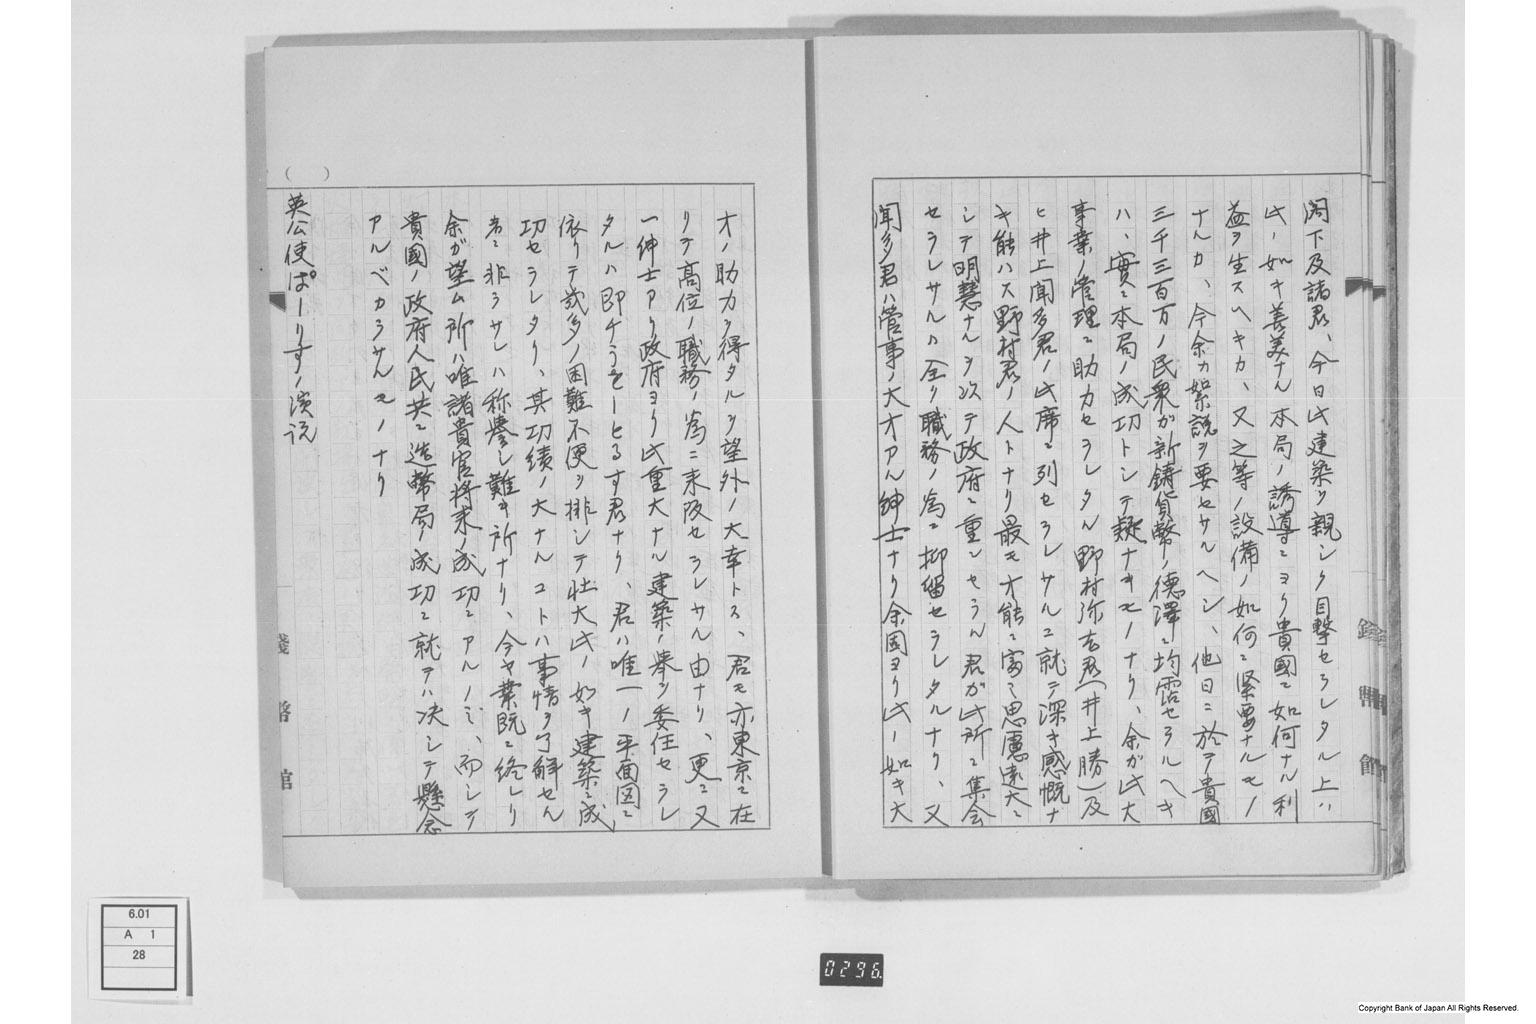 閣下及諸君、今日此建築ヲ親シク目撃セラレタル上ハ
此ノ如キ善美ナル本局ノ誘導ニヨリ貴國ニ如何ナル利
益ヲ生スヘキカ、又之等ノ設備ノ如何ニ緊要ナルモノ
ナルカ、今余カ絮説ヲ要セサルヘシ、他日ニ於テ貴國
三千三百万ノ民衆が新鋳貨幣ノ徳澤ニ均霑セラルヘキ
ハ、實ニ本局ノ成功トシテ疑ナキモノナリ、余が此大
事業ノ管理ニ助力セラレタル野村弥吉君(井上勝)及
ヒ井上聞多君ノ此席ニ列セラレサルニ就テ深キ感慨ナ
キ能ハス野村君ノ人トナリ最モ才能ニ富ミ思慮遠大ニ
シテ明慧ナルヲ以テ政府ニ重ンセラル君が此所ニ集会
セラレサルハ全ク職務ノ為ニ抑留セラレタルナリ、又
聞多君ハ管事ノ大才アル紳士ナリ余固ヨリ此ノ如キ大
才ノ助力ヲ得タルヲ望外ノ大幸トス、君モ亦東京ニ在
リテ高位ノ職務ノ為ニ来阪セラレサル由ナリ、更ニ又
一紳士アリ政府ヨリ此重大ナル建築ノ挙ヲ委任セラレ
タルハ即チうをーとるす君ナリ、君ハ唯一ノ平面図ニ
依リテ幾多ノ困難不便ヲ排シテ壮大此ノ如キ建築ニ成
功セラレタリ、其功績ノ大ナルコトハ事情ヲ了解セル
者ニ非ラサレハ称誉シ難キ所ナリ、今ヤ業既ニ終レリ
余が望ム所ハ唯諸貴官将来ノ成功ニアルノミ、而シテ
貴國ノ政府人民共ニ造幣局ノ成功ニ就テハ决シテ懸念
アルベカラサルモノナリ
英公使ぱーりすノ演説
( )
銭幣館
銭幣館
6.01
A 1
28
0296.
Copyright Bank of Japan All Rights Reserved.